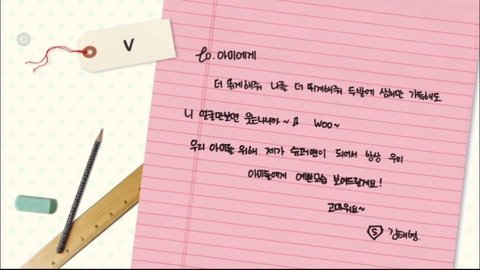 V
To. 아미에게
더 뛰게해줘 나를 더 뛰게해줘 두발에 상처만 가득해도
니 얼굴만보면 웃는나니까~♬ woo~
우리 아미들 위해 제가 슈퍼맨이 되어서 항상 우리
아미들에게 예쁜모습 보여드릴게요!
고마워요~
S 김태형.